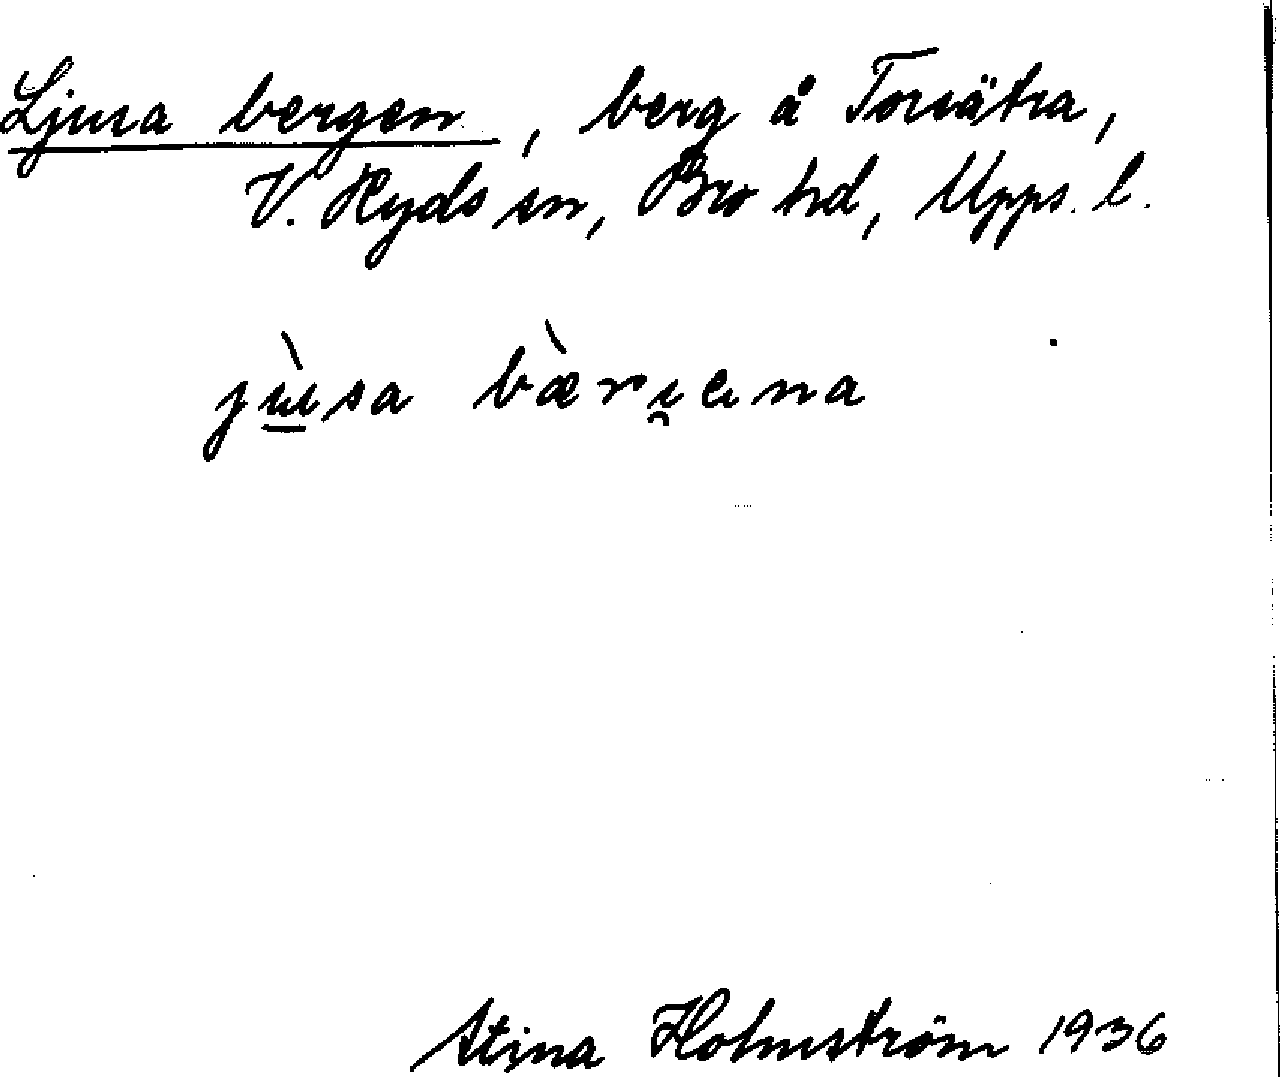 Ljusa bergen, berg å Torsätra,
V. Ryds sn, Bro hd, Upps. l.
jùsa bær
Stina Holmström 1936